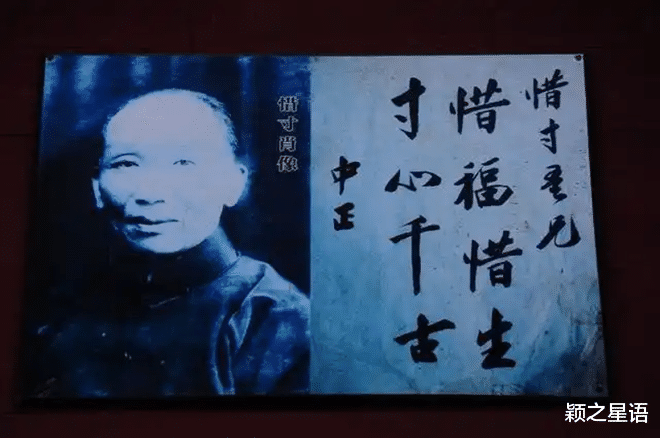 惜寸吾兄
惜福惜生
寸心千古
中正
惜寸肖像
颖之星语